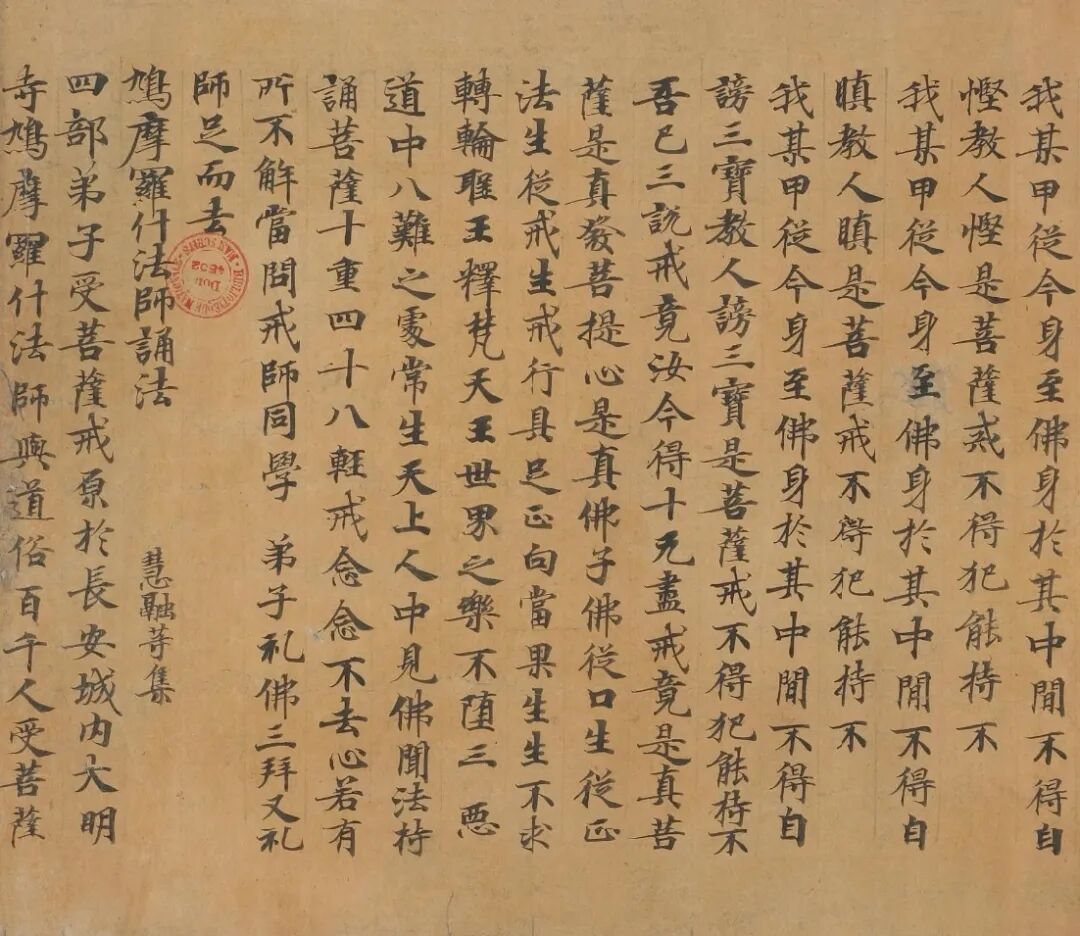 我某甲從今身至佛身於其中間不得自
慳教人慳是菩薩戒不得犯能持不
我某甲從今身至佛身於其中間不得自
瞋教人瞋是菩薩戒不得犯能持不
我某甲從今身至佛身於其中間不得自
謗三寶教人謗三寶是菩薩戒不得犯能持不
吾已三說戒竟汝今得十无盡戒竟是真菩
薩是真發菩提心是真佛子佛從口生從正
法生從戒生戒行具足正向當果生生不求
轉輪聖王釋梵天王世界之樂不墮三惡
道中八難之處常生天上人中見佛聞法持
誦菩薩十重四十八輕戒念念不去心若有
所不解當問戒師同學 弟子礼佛三拜又礼
師足而去
鳩摩羅什法師誦法
慧融等集
四部弟子受菩薩戒原於長安城內大明
寺鳩摩羅什法師與道俗百千人受菩薩
MANUSCRITS
Don
4502